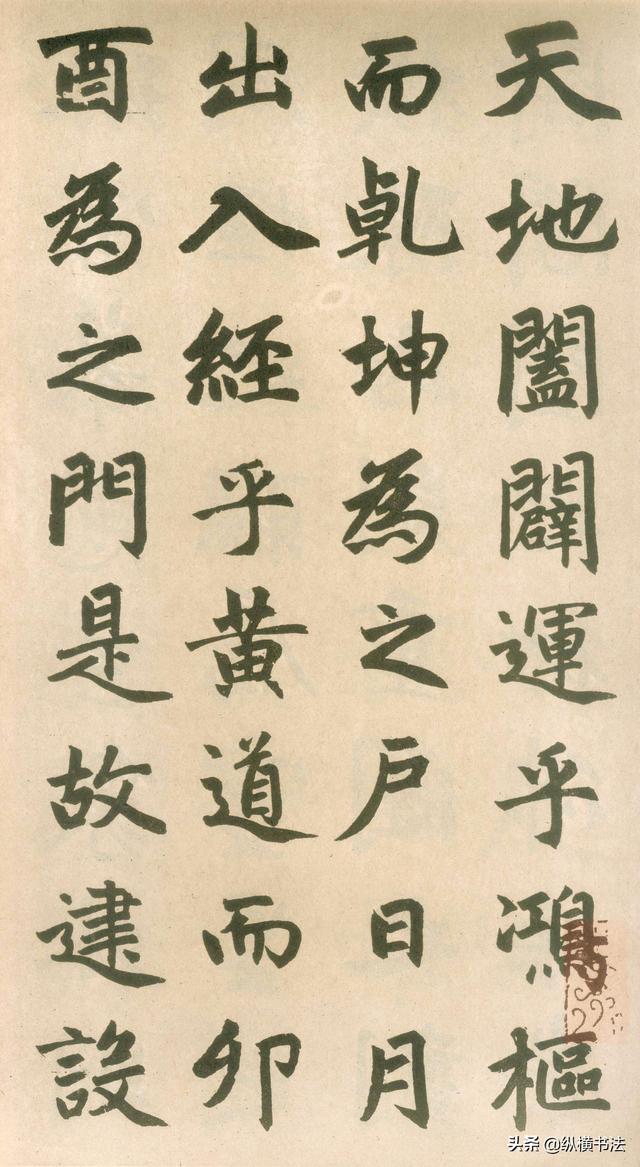 天地闔闢運乎鴻樞
而乹坤為之户日月
出入經乎黄道而卯
酉為之門是故建設
头条 @纵横书法